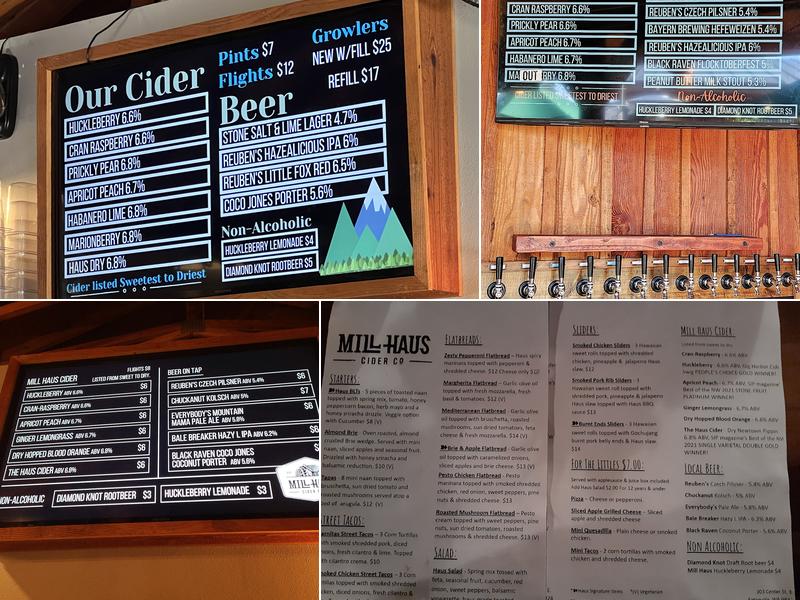 Our Cider
HUCKLEBERRY 6.6%
CRAN RASPBERRY 6.6%
PRICKLY PEAR 6.8%
APRICOT PEACH 6.7%
HABANERO LIME 6.8%
MARIONBERRY 6.8%
HAUS DRY 6.8%
Cider listed Sweetest to Driest
Pints $7
Flights $12
Growlers
NEW W/FILL $25
REFILL $17
Beer
STONE SALT & LIME LAGER 4.7%
REUBEN'S HAZEALICIOUS IPA 6%
REUBEN'S LITTLE FOX RED 6.5%
COCO JONES PORTER 5.6%
Non-Alcoholic
HUCKLEBERRY LEMONADE $4
DIAMOND KNOT ROOTBEER $5
CRAN RASPBERRY 6.6%
PRICKLY PEAR 6.6%
APRICOT PEACH 6.7%
HABANERO LIME 6.7%
MA OUT RRY 6.8%
CIDER LISTED SWEETEST TO DRIEST
REUBEN'S CZECH PILSNER 5.4%
BAYERN BREWING HEFEWEIZEN 5.4%
REUBEN'S HAZEALICIOUS IPA 6%
BLACK RAVEN FLOCKTOBERFEST
PEANUT BUTTER MILK STOUT 5.3%
Non-Alcoholic
HUCKLEBERRY LEMONADE $4
DIAMOND KNOT ROOTBEER $5
MILL HAUS CIDER
FLIGHTS $8
LISTED FROM SWEET TO DRY.
HUCKLEBERRY ABV 6.6% $6
CRAN-RASPBERRY ABV 6.6% $6
APRICOT PEACH ABV 6.7% $6
GINGER LEMONGRASS ABV 6.7% $6
DRY HOPPED BLOOD ORANGE ABV 6.8% $6
THE HAUS CIDER ABV 6.8% $6
BEER ON TAP
REUBEN'S CZECH PILSNER ABV 5.4% $6
CHUCKANUT KOLSCH ABV 5% $7
EVERYBODY'S MOUNTAIN
MAMA PALE ALE ABV 5.8% $6
BALE BREAKER HAZY L IPA ABV 6.2% $6
BLACK RAVEN COCO JONES
COCONUT PORTER ABV 5.6% $6
NON-ALCOHOLIC
DIAMOND KNOT ROOTBEER $3
HUCKLEBERRY LEMONADE $3
MILL HAUS
CIDER CO
STARTERS:
Haus BLTs - 5 pieces of toasted naan
topped with spring mix, tomato, honey
pepper corn bacon, herb mayo and a
honey sriracha drizzle. Veggie option
with Cucumber $8 (V)
Almond Brie - Oven roasted, almond
crusted Brie wedge. Served with mini
naan, sliced apples and seasonal fruit.
Drizzled with honey sriracha and
balsamic reduction. $10 (V)
Tapas - 8 mini naan topped with
bruschetta, sun dried tomato and
roasted mushrooms served atop a
bed of arugula. $12 (V)
STREET TACOS:
Carnitas Street Tacos - 3 Corn Tortillas
with smoked shredded pork, diced
onions, fresh cilantro & lime. Topped
with cilantro crema. $10
Smoked Chicken Street Tacos - 3 Corn
Tortillas with smoked shredded
chicken, diced onions, fresh cilantro &
FLATBREADS:
Zesty Pepperoni Flatbread - Haus spicy
marinara topped with pepperoni &
shredded cheese. $12 Cheese only $10
Margherita Flatbread - Garlic olive oil
topped with fresh mozzarella, fresh
basil & tomatoes. $12 (V)
Mediterranean Flatbread - Garlic olive
oil topped with bruschetta, roasted
mushrooms, sun dried tomatoes, feta
cheese & fresh mozzarella. $14 (V)
Brie & Apple Flatbread - Garlic olive
oil topped with caramelized onions,
sliced apples and brie cheese. $13 (V)
Pesto Chicken Flatbread - Pesto
marinara topped with smoked shredded
chicken, red onion, sweet peppers, pine
nuts & shredded cheese. $13
Roasted Mushroom Flatbread - Pesto
cream topped with sweet peppers, pine
nuts, sun dried tomatoes, roasted
mushrooms & shredded cheese. $13 (V)
SALAD:
Haus Salad - Spring mix tossed with
feta, seasonal fruit, cucumber, red
onion, sweet peppers, balsamic
SLIDERS:
Smoked Chicken Sliders - 3 Hawaiian
sweet rolls topped with shredded
chicken, pineapple & jalapeno Haus
slaw. $12
Smoked Pork Rib Sliders - 3
Hawaiian sweet roll topped with
shredded pork, pineapple & jalapeno
Haus slaw topped with Haus BBQ
sauce $13
Burnt Ends Sliders - 3 Hawaiian
sweet rolls topped with Gochujang
burnt pork belly ends & Haus slaw.
$14
FOR THE LITTLES $7.00:
Served with applesauce & juice box included
Add Haus Salad $2.00 For 12 years & under
Pizza - Cheese or pepperoni.
Sliced Apple Grilled Cheese - Sliced
apple and shredded cheese
Mini Quesadilla - Plain cheese or smoked
chicken.
Mini Tacos - 2 corn tortillas with smoked
chicken and shredded cheese.
*Haus Signature Items *(V) Vegetarian
MILL HAUS CIDER:
Listed from sweet to dry
Cran-Raspberry - 6.6% ABV
Huckleberry
PEOPLE'S CHOICE GOLD WINNER!
Apricot Peach - 6.7% ABV, SIP magazine'
Best of the NW 2021 STONE FRUIT
PLATINUM WINNER!
Ginger Lemongrass - 6.7% ABV
Dry Hopped Blood Orange - 6.8% ABV
The Haus Cider - Dry Newtown Pippin
6.8% ABV, SIP magazine's Best of the NW
2021 SINGLE VARIETAL DOUBLE GOLD
WINNER!
LOCAL BEER:
Reuben's Czech Pilsner - 5.4% ABV
Chuckanut Kolsch - 5% ABV
Everybody's Pale Ale - 5.8% ABV
Bale Breaker Hazy L IPA - 6.2% ABV
Black Raven Coconut Porter - 5.6% ABV
NON ALCOHOLIC:
Diamond Knot Draft Root beer $4
Mill Haus Huckleberry Lemonade $4
303 Center St. E